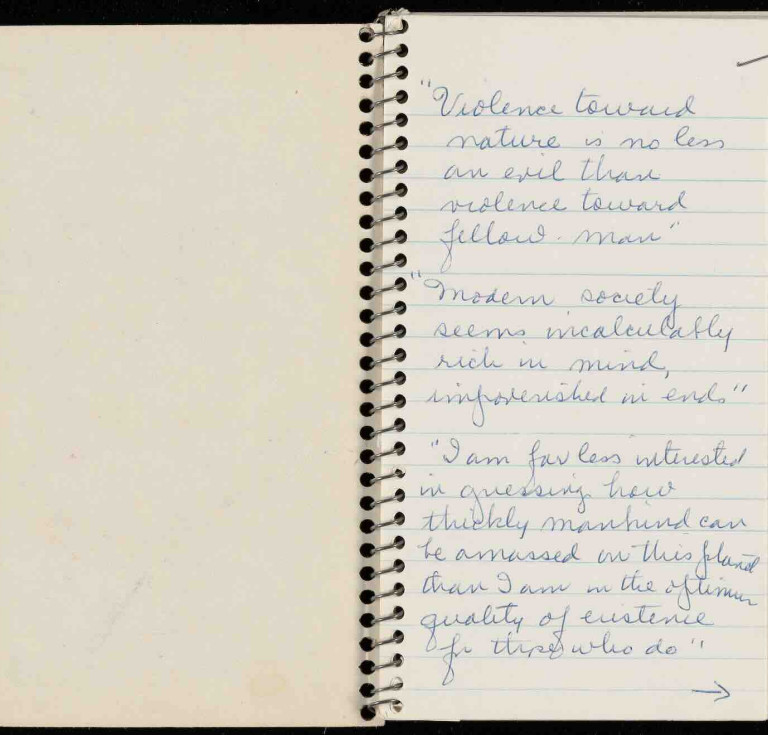 "Violence toward
nature is no less
an evil than
violence toward
fellow-man"
"Modern society
seems incalculably
rich in mind,
impoverished in ends"
"I am far less interested
in guessing how
thickly mankind can
be amassed on this planet
than I am in the optimum
quality of existence
for those who do"
→